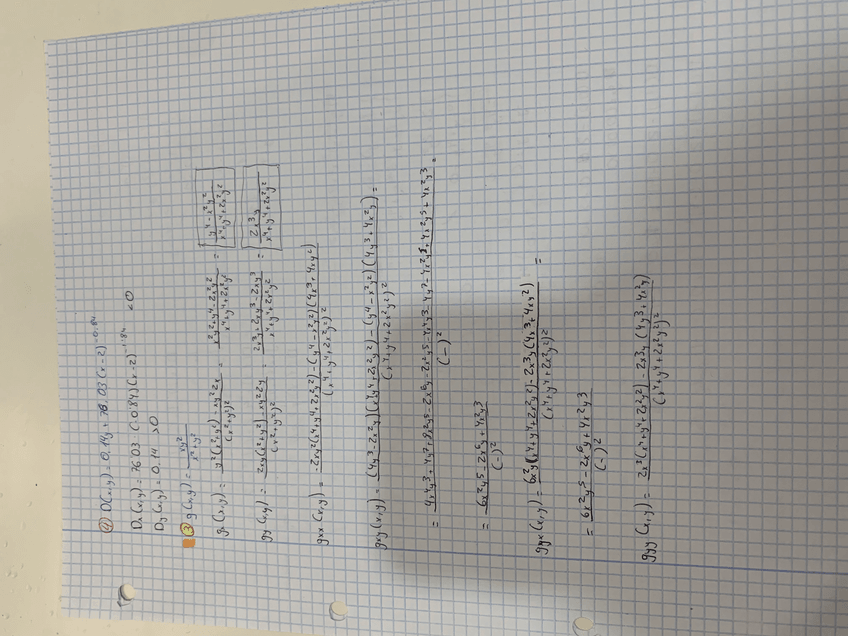 D(x,y) = 0.14y + 76.03 (x-2)^-0.84
Dx(x,y) = 76.03 (-0.84)(x-2)^-1.84 <0
Dy(x,y) = 0.14 >0
③ g(x,y) = xy²/(x²+y²)
gx(x,y) = (y²(x²+y²) - xy²2x)/(x²+y²)² = (x²y²+y⁴-2x²y²)/(x⁴+y⁴+2x²y²) = (y⁴-x²y²)/(x⁴+y⁴+2x²y²)
gy(x,y) = (2xy(x²+y²) - xy²2y)/(x²+y²)² = (2x³y+2xy³-2xy³)/(x⁴+y⁴+2x²y²) = 2x³y/(x⁴+y⁴+2x²y²)
gxx(x,y) = (-2xy²(x⁴+y⁴+2x²y²)-(y⁴-x²y²)(4x³+4xy²))/(x⁴+y⁴+2x²y²)²
gxy(x,y) = ((4y³-2x²y)(x⁴+y⁴+2x²y²)-(y⁴-x²y²)(4y³+4x²y))/(x⁴+y⁴+2x²y²)² =
= /(-)² =
= (6x²y⁵-2x⁶y+4x²y³)/(-)²
gyx(x,y) = (6x²y(x⁴+y⁴+2x²y²)-2x³y(4x³+4xy²))/(x⁴+y⁴+2x²y²)² =
= (6x²y⁵-2x⁶y+4x²y³)/(-)²
gyy(x,y) = (2x³(x⁴+y⁴+2x²y²)-2x³y(4y³+4x²y))/(x⁴+y⁴+2x²y²)²